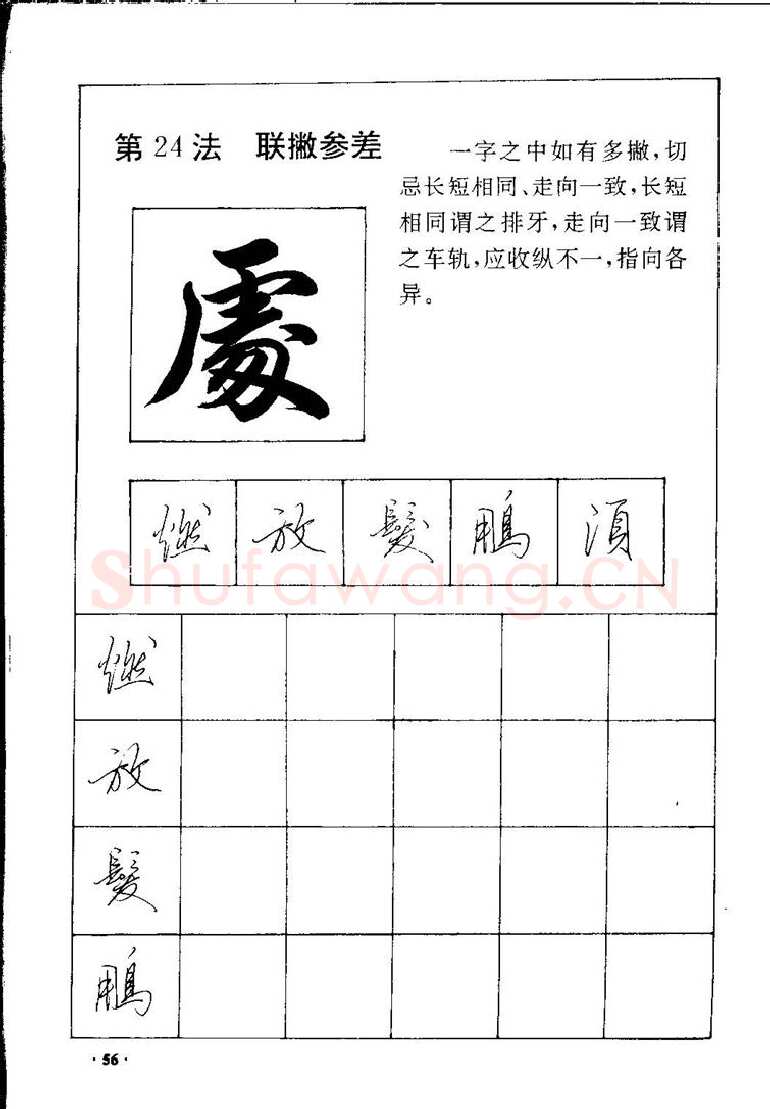 第24法 联撇参差
一字之中如有多撇,切
忌长短相同、走向一致,长短
相同谓之排牙,走向一致谓
之车轨,应收纵不一,指向各
异。
處
燃 放 髮 鵬 須
Shufawang.CN
燃
放
髮
鵬
·56·